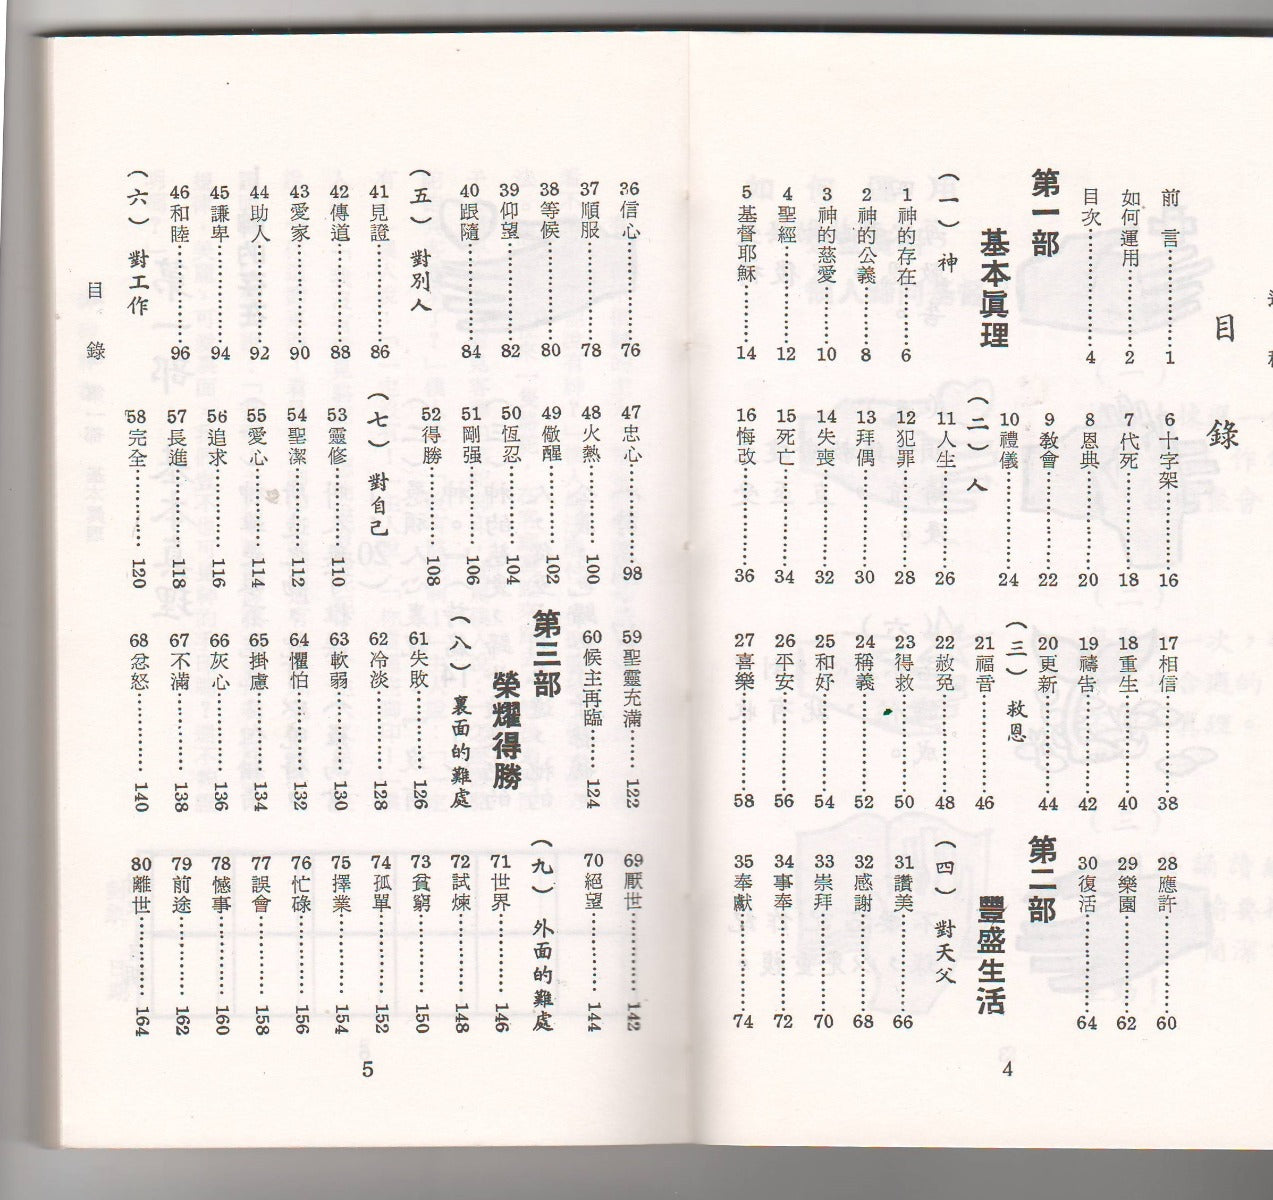 目錄
前言……1
如何運用……2
目次……4
第一部
基本眞理
(一) 神
1 神的存在……6
2 神的公義……8
3 神的慈愛……10
4 聖經……12
5 基督耶穌……14
6 十字架……16
7 代死……18
8 恩典……20
9 敎會……22
10 禮儀……24
(二) 人
11 人生……26
12 犯罪……28
13 拜偶……30
14 失喪……32
15 死亡……34
16 悔改……36
17 相信……38
18 重生……40
19 禱告……42
20 更新……44
(三) 救恩
21 福音……46
22 赦免……48
23 得救……50
24 稱義……52
25 和好……54
26 平安……56
27 喜樂……58
28 應許……60
29 樂園……62
30 復活……64
第二部
豐盛生活
(四) 對天父
31 讚美……66
32 感謝……68
33 崇拜……70
34 事奉……72
35 奉獻……74
4
36 信心……76
37 順服……78
38 等候……80
39 仰望……82
40 跟隨……84
(五) 對別人
41 見證……86
42 傳道……88
43 愛家……90
44 助人……92
45 謙卑……94
46 和睦……96
(六) 對工作
47 忠心……98
48 火熱……100
49 儆醒……102
50 恆忍……104
51 剛强……106
52 得勝……108
(七) 對自己
53 靈修……110
54 聖潔……112
55 愛心……114
56 追求……116
57 長進……118
58 完全……120
59 聖靈充滿……122
60 候主再臨……124
第三部
榮耀得勝
(八) 裏面的難處
61 失敗……126
62 冷淡……128
63 軟弱……130
64 懼怕……132
65 掛慮……134
66 灰心……136
67 不滿……138
68 忿怒……140
69 厭世……142
70 絕望……144
(九) 外面的難處
71 世界……146
72 試煉……148
73 貧窮……150
74 孤單……152
75 擇業……154
76 忙碌……156
77 誤會……158
78 憾事……160
79 前途……162
80 離世……164
目錄
5